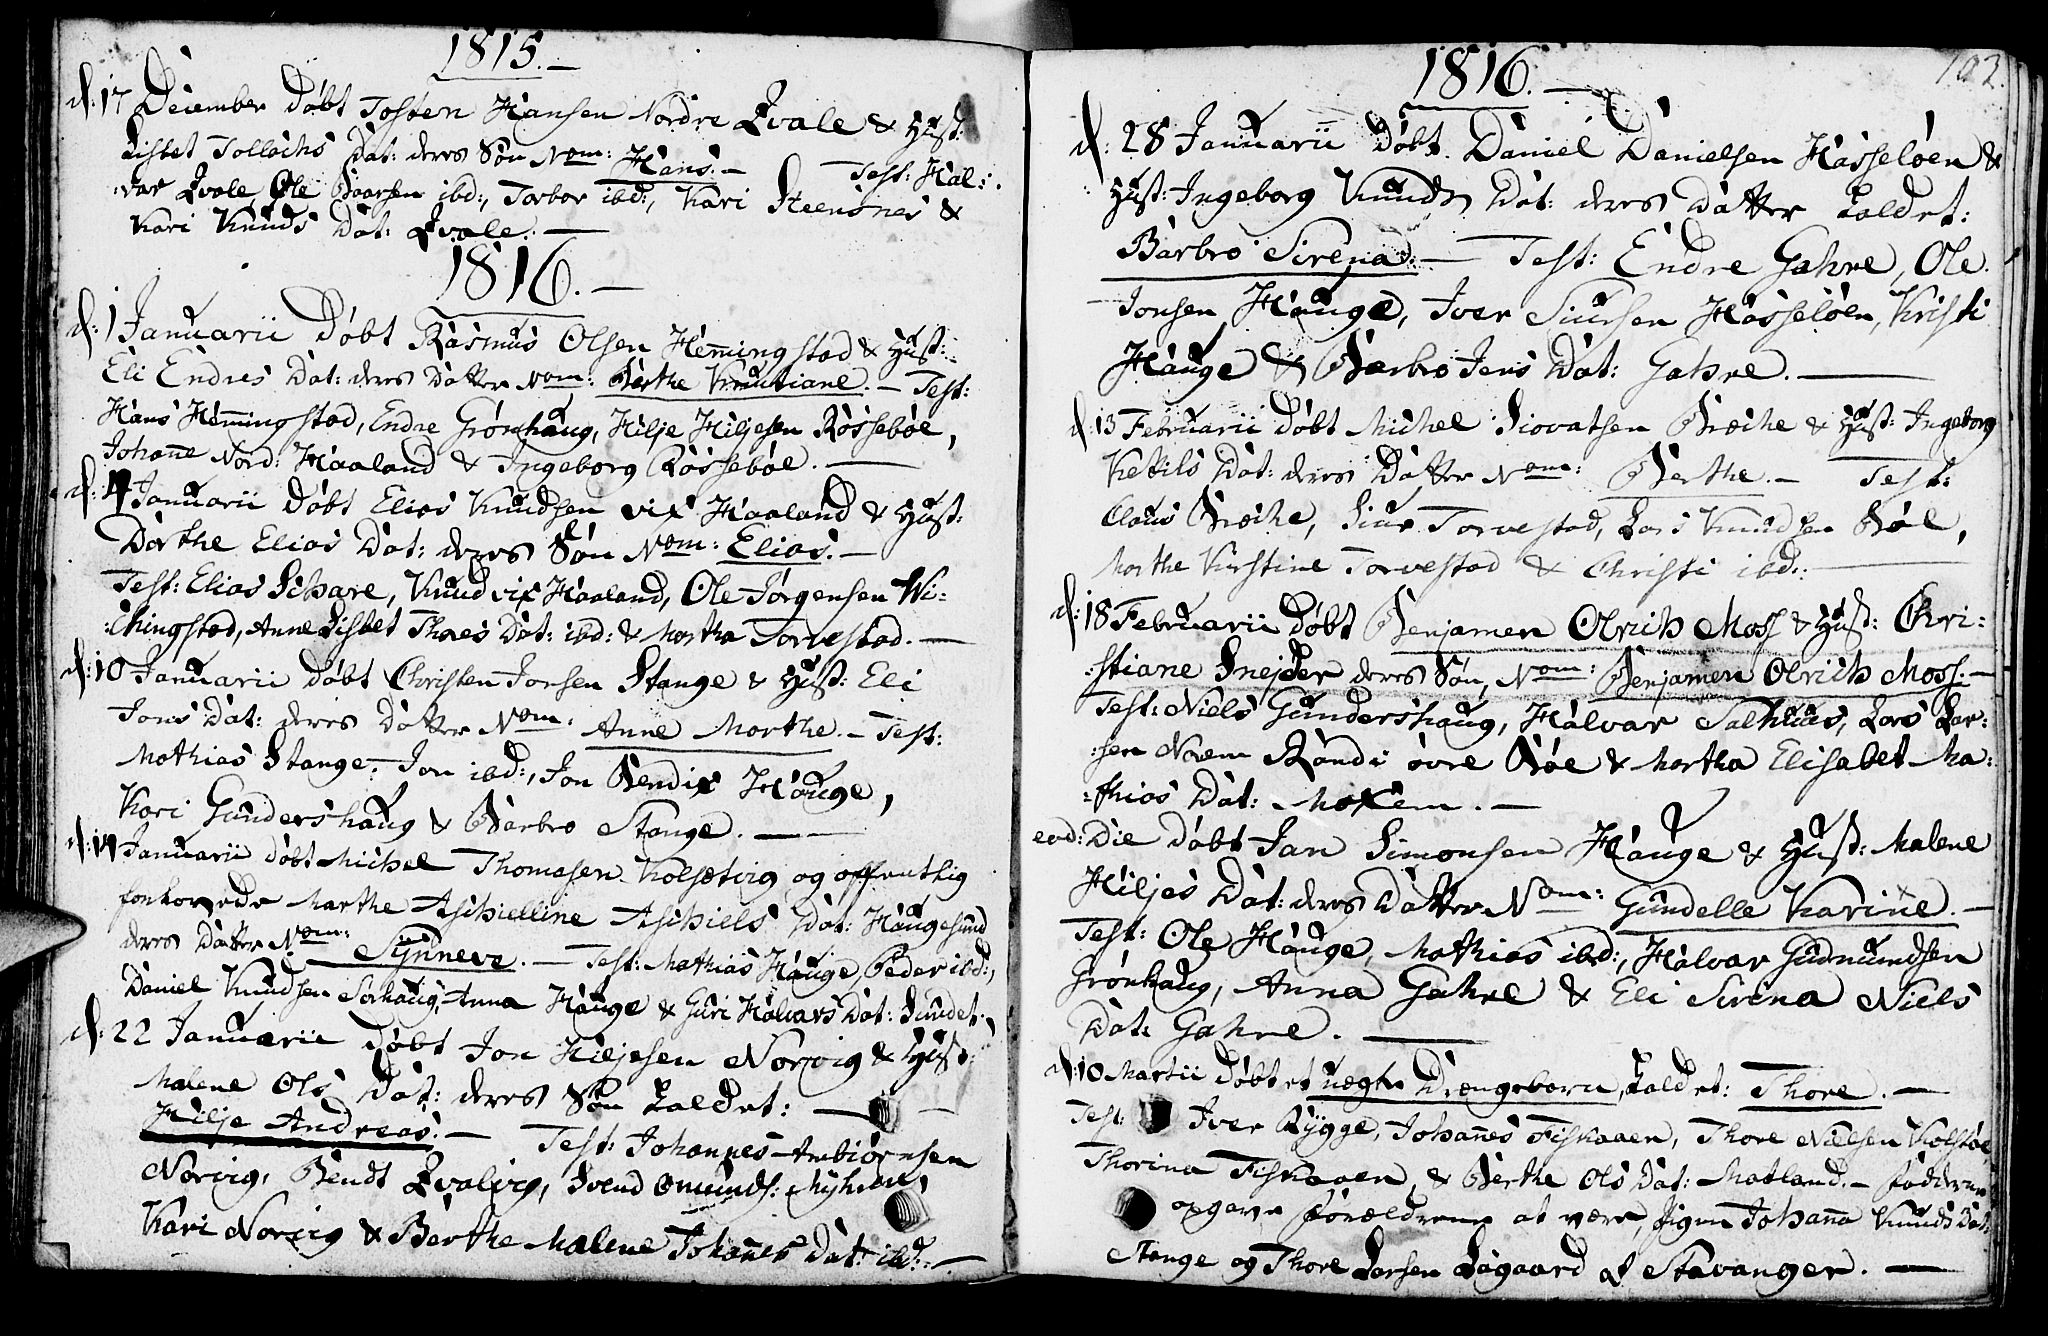 1815.
d: 17 December Døbt Tosten Hansen Nordre Qvale & Hust:
Lisbet Tollachs Dat: deres Søn Nom: Hans. – Test: Hal:
:var Qvale, Ole Baarsen ibd:, Torbor ibd:, Kari Steensnes &
Kari Knuds Dat: Qvale. –
1816. –
d: 1 Januarii Døbt Rasmus Olsen Hemingstad & Hust:
Eli Endres Dat: deres Datter Nom: Berthe Knutiane. – Test:
Hans Hemingstad, Endre Grönhaug, Hilje Hiljesen Røssebøe,
Johanne Nord: Haaland & Ingeborg Røssebøe. –
d: 4 Januarii Døbt Elias Knudsen vix Haaland & Hust:
Dorthe Elias Dat: deres Søn Nom: Elias. –
Test: Elias Schare, Knud vix Haaland, Ole Jørgensen Wi:
:chingstad, Anne Lisbet Thores Dat: ibd: & Martha Torvestad. –
d: 10 Januarii Døbt Christen Jonsen Stange & Hust: Eli
Jons Dat: deres Datter Nom: Anne Marthe. – Test:
Mathias Stange, Jon ibd:, Jon Bendix Hauge,
Kari Gundershaug & Barbro Stange. –
d: 14 Januarii døbt Michel Thomasen Kolsetvig og offentlig
Marthe Aschielline Aschiels Dat: Haugesund
deres Datter Nom: Sÿnneve. – Test: Mathias Hauge, Peder ibd:,
Daniel Knudsen Sørhaug, Anna Hauge & Guri Halvars Dat: Sundet.
d: 22 Januarii Døbt Jon Hiljesen Norvig & Hust:
Malene Ols Dat: deres Søn kaldet: –
Hilje Andreas. – Test: Johannes Ambiørnsen
Norvig, Bendt Qvalvig, Svend Omunds: Mÿhren,
Kari Norvig & Berthe Malene Johanes Dat: ibd: –
102.
1816. –
d: 28 Januarii Døbt Daniel Danielsen Hasseløen &
Hust: Ingeborg Knuds Dat: deres Datter kaldet:
Barbro Sirena. – Test: Endre Gahre, Ole
Jonsen Hauge, Iver Siursen Hasseløen, Kristi
Hauge & Barbro Jens Dat: Gahre. –
d: 13 Februarii Døbt Michel Siovatsen Bræche & Hust: Ingeborg
Kettils Dat: deres Datter Nom: Berthe. – Test:
Claus Bræche, Siur Torvestad, Lars Knudsen Bøe,
Marthe Kirstine Torvestad & Christi ibd: –
d: 18 Februarii Døbt Benjamen Olrich Moss & Hust: Chri:
:stiane Snejder deres Søn, Nom: Benjamen Olrich Moss. –
Test: Niels Gundershaug, Halvar Salhuus, Lars Lar:
:sen Norem Randi övre Bøe & Martha Elisabet Ma:
:thias Dat: Moxem. –
eod: Die døbt Jan Simonsen Hauge & Hust: Malene
Hiljes Dat: deres Datter Nom: Gundelle Karine. –
Test: Ole Hauge, Mathias ibd:, Halvar Gudmundsen
Grönhaug, Anna Gahre & Eli Sirina Niels
Dat: Gahre. –
d: 10 Martii Døbt et uægte Drengebarn, kaldet: Thore. –
Test: Iver Rÿgge, Johanes Fiskaaen, Thore Nielsen Kolstøe,
Thorina Fiskaaen, & Berthe Ols Dat: Matland. –
opgave Forældrene at være, Pigen Johanna Knuds Dat:
Stange og Thore Larsen Lagaard af Stavanger. –